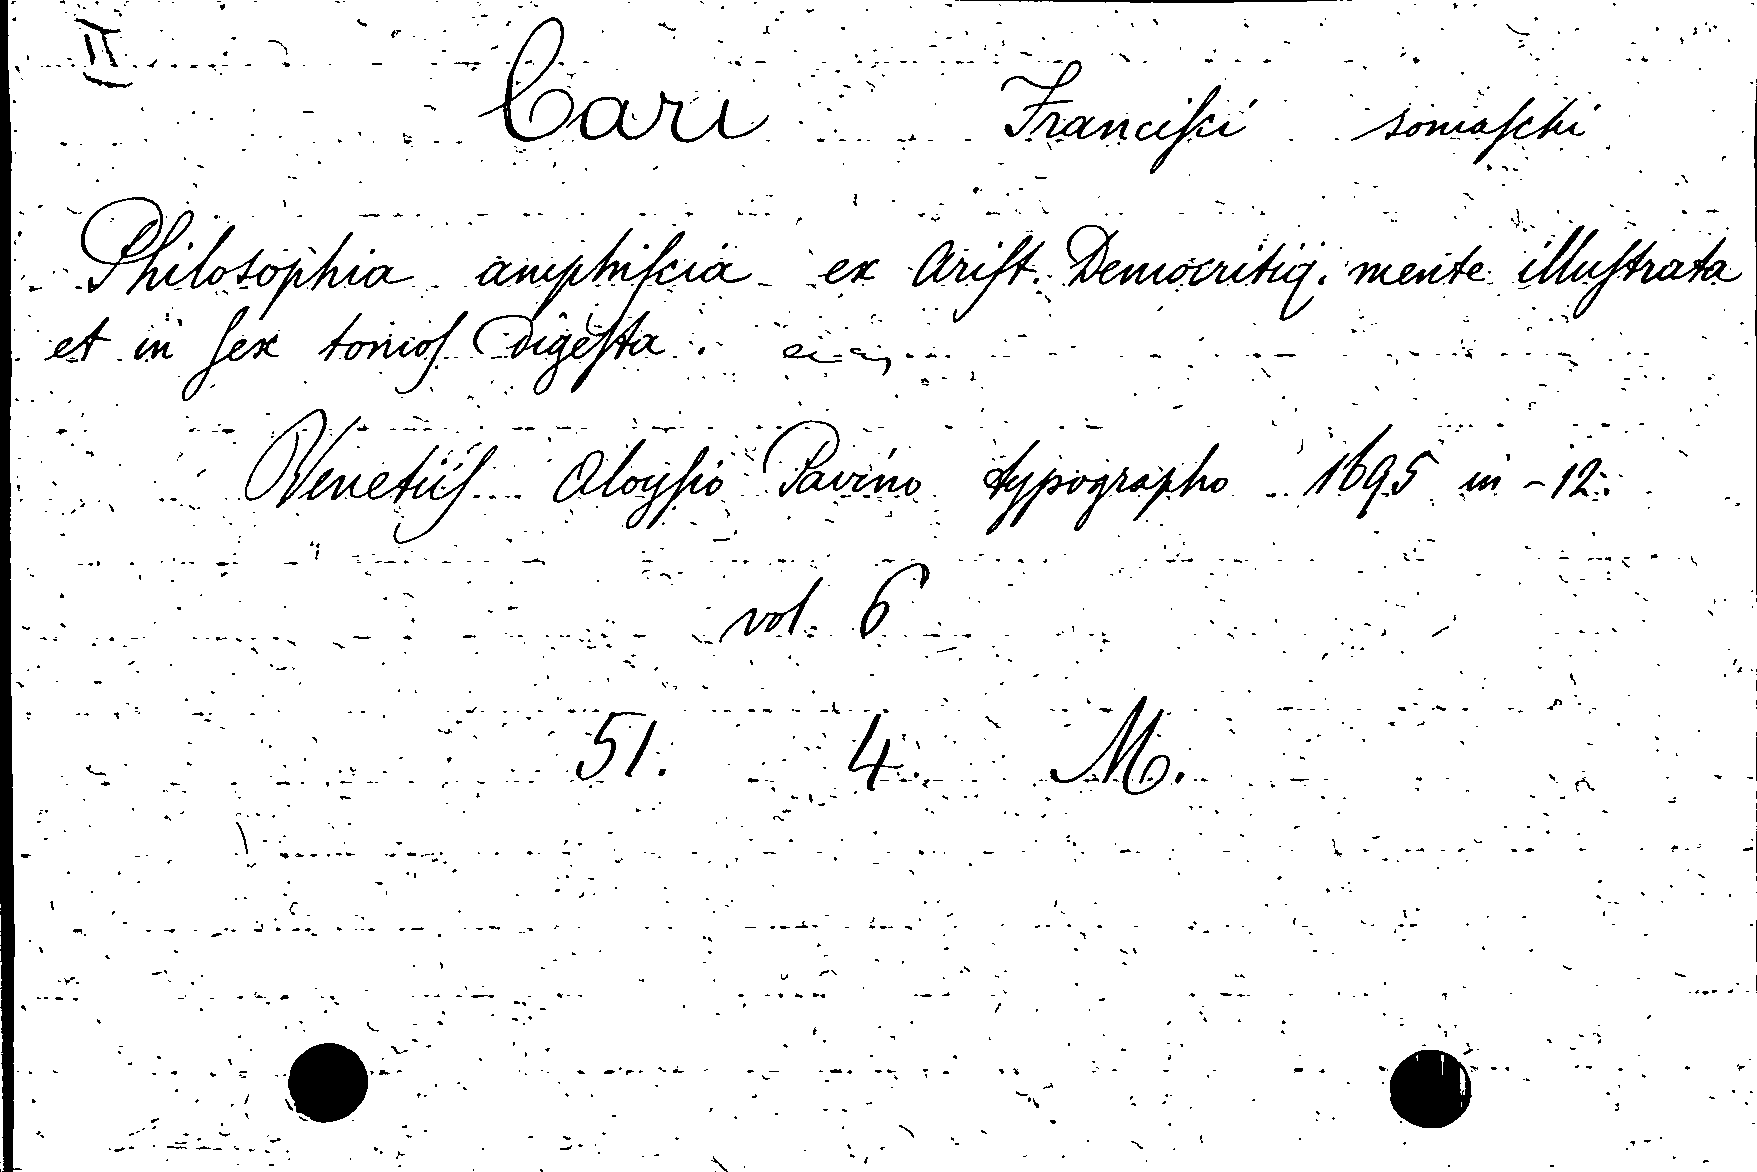 II
Cari Franciſci somaſchi
Philosophia amphiſcia ex Ariſt. Democritiq. mente illuſtrata
et in ſex tomoſ digeſta.
Venetiiſ Aloyſio Pavino typographo 1695 in-12.
vol. 6
51. 4. M.